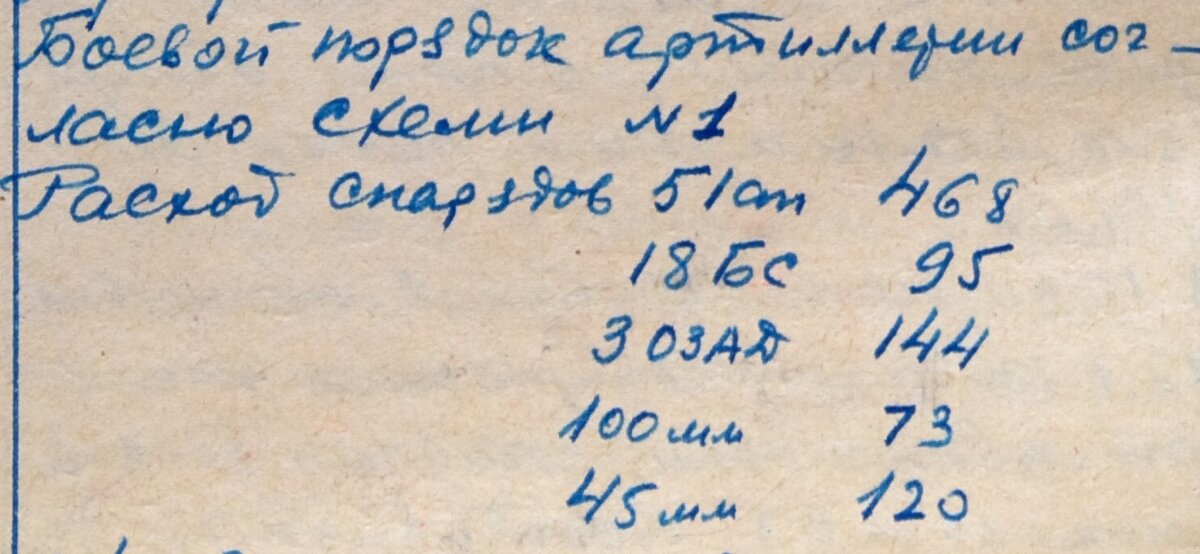 Боевой порядок артиллерии сог-
ласно схемы №1
Расход снарядов 51ап 468
18 БС 95
3 ОЗАД 144
100 мм 73
45 мм 120